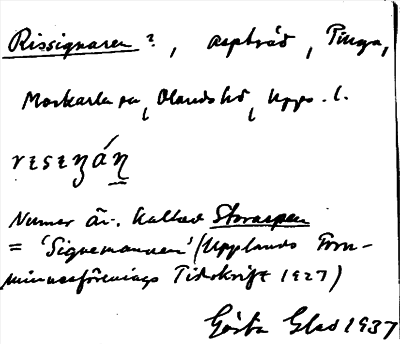 Rissignaren?, aspträd, Tinga,
Morkarla sn, Olands hd, Upps. l.
Numer är. kallad Storaspen
= 'Signemannen' (Upplands Forn-
minnesförenings Tidskrift 1927)
Gösta Glad 1937